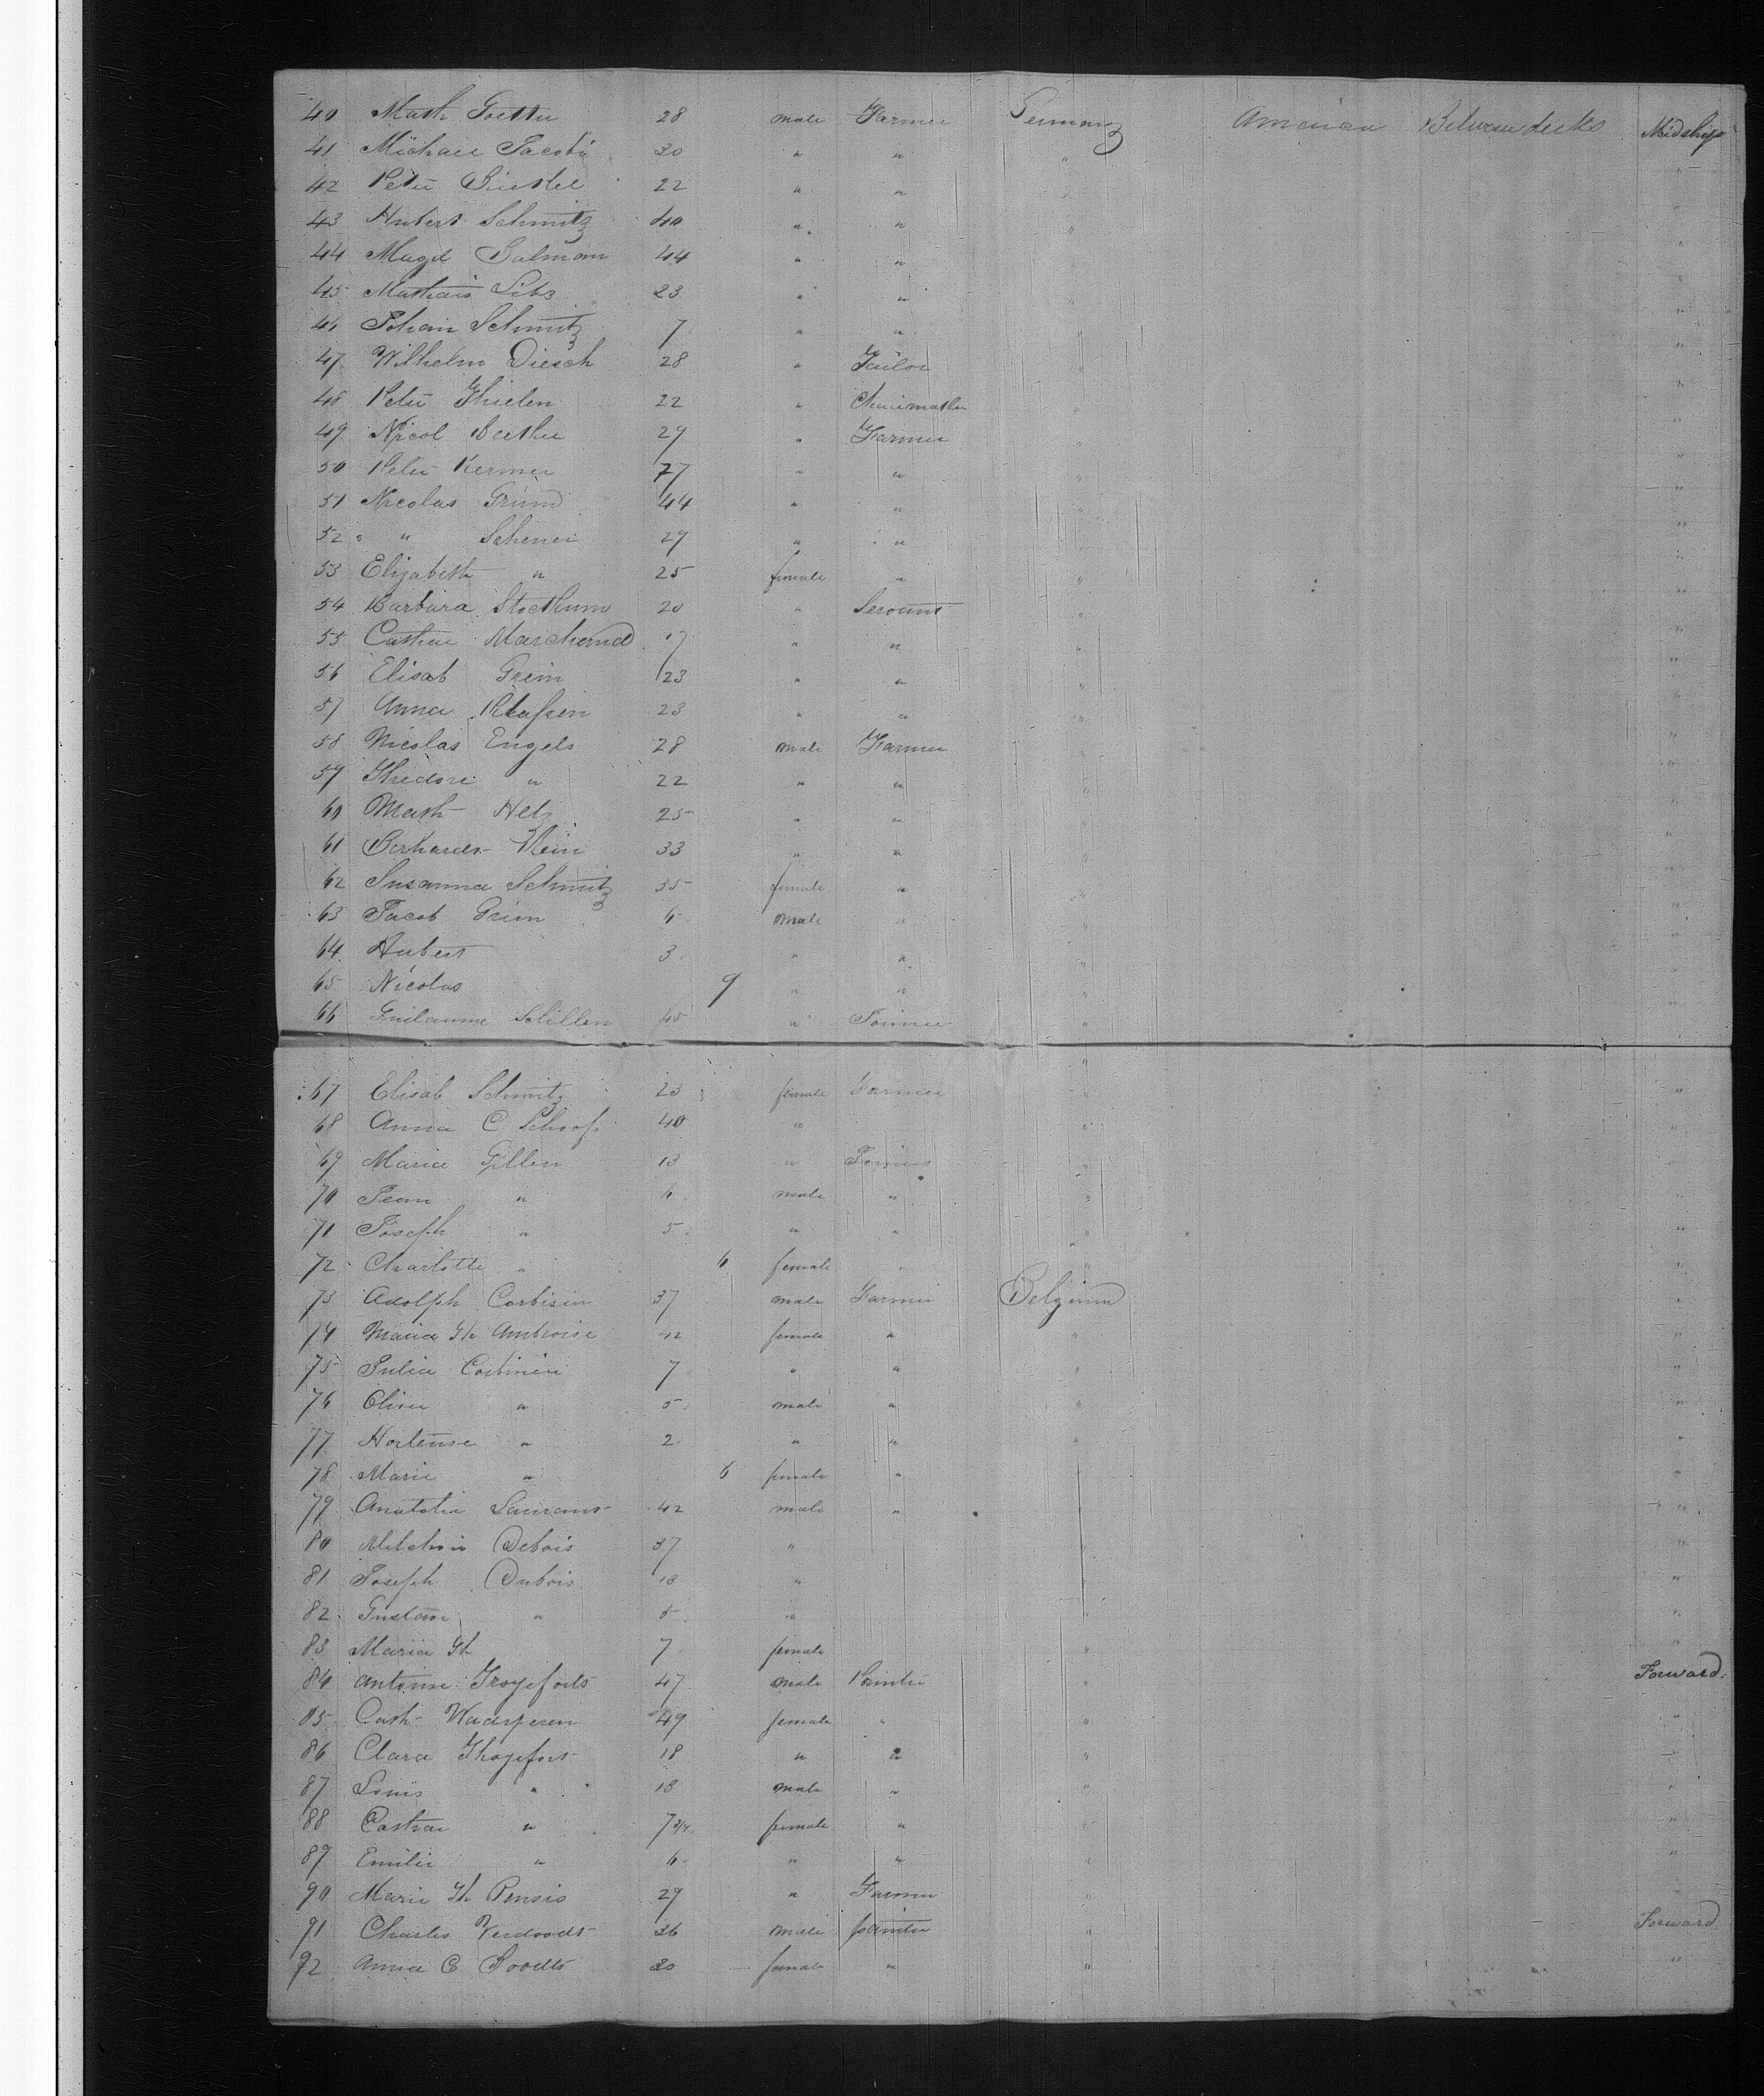 40 Math Goetter 28 male Farmer Germany America Between decks Midship
41 Michael Jacobi 30 " " " "
42 Peter 22 " " " "
43 Hubert Schmitz 40 " " " "
44 Magd Salmon 44 " " " "
45 Mathais Litz 23 " " " "
46 Johan Schmitz 7 " " " "
47 Wilhelm Diesch 28 " Tailor " "
48 Peter Thielen 22 " " "
49 Nicol 29 " Farmer " "
50 Peter Kermer 77 " " " "
51 Nicolas Grimd 44 " " " "
52 " " Scherrer 29 " " " "
53 Elizabeth " 25 female " " "
54 Barbara Stockum 20 " Servant " "
55 Cathar Marchand 17 " " " "
56 Elisab Grim 23 " " " "
57 Anna Klassen 23 " " " "
58 Nicolas Engels 28 male Farmer " "
59 Thedore " 22 " " " "
60 Math Helz 25 " " " "
61 Gerhardt Klein 33 " " " "
62 Susanna Schmitz 55 female " " "
63 Jacob Grim 6 male " " "
64 Hubert 3 " " " "
65 Nicolas 9 " " " "
66 Guilaume 45 " "
67 Elisab Schmitz 23 female Farmer " "
68 Anna C Schoof 40 " " "
69 Maria Gillen 13 " " "
70 Jean " 6 male " " "
71 Joseph " 5 " " " "
72 Charlotte " 6 female " " "
73 Adolph Corbisier 37 male Farmer Belgium "
74 Maria Th Ambroise 42 female " " "
75 Julia Corbisier 7 " " " "
76 " 5 male " " "
77 Hortense " 2 " " " "
78 Marie " 6 female " "
79 42 male " "
80 Debois 37 " "
81 Joseph Dubois 13 " "
82 Gustave " 5 " " "
83 Maria Th 7 female " "
84 Antoine Troyefoits 47 male Painter " Forward.
85 Cath Waarperen 49 female " " "
86 Clara Thoyefort 18 " " " "
87 Louis " 13 male " " "
88 Cathar " 7 3/4 female " " "
89 Emilie " 6 " " " "
90 Marie Th Pensis 29 " Farmer "
91 Charles Verdoodt 36 male painter " Forward
92 Anna C 30 female " " "